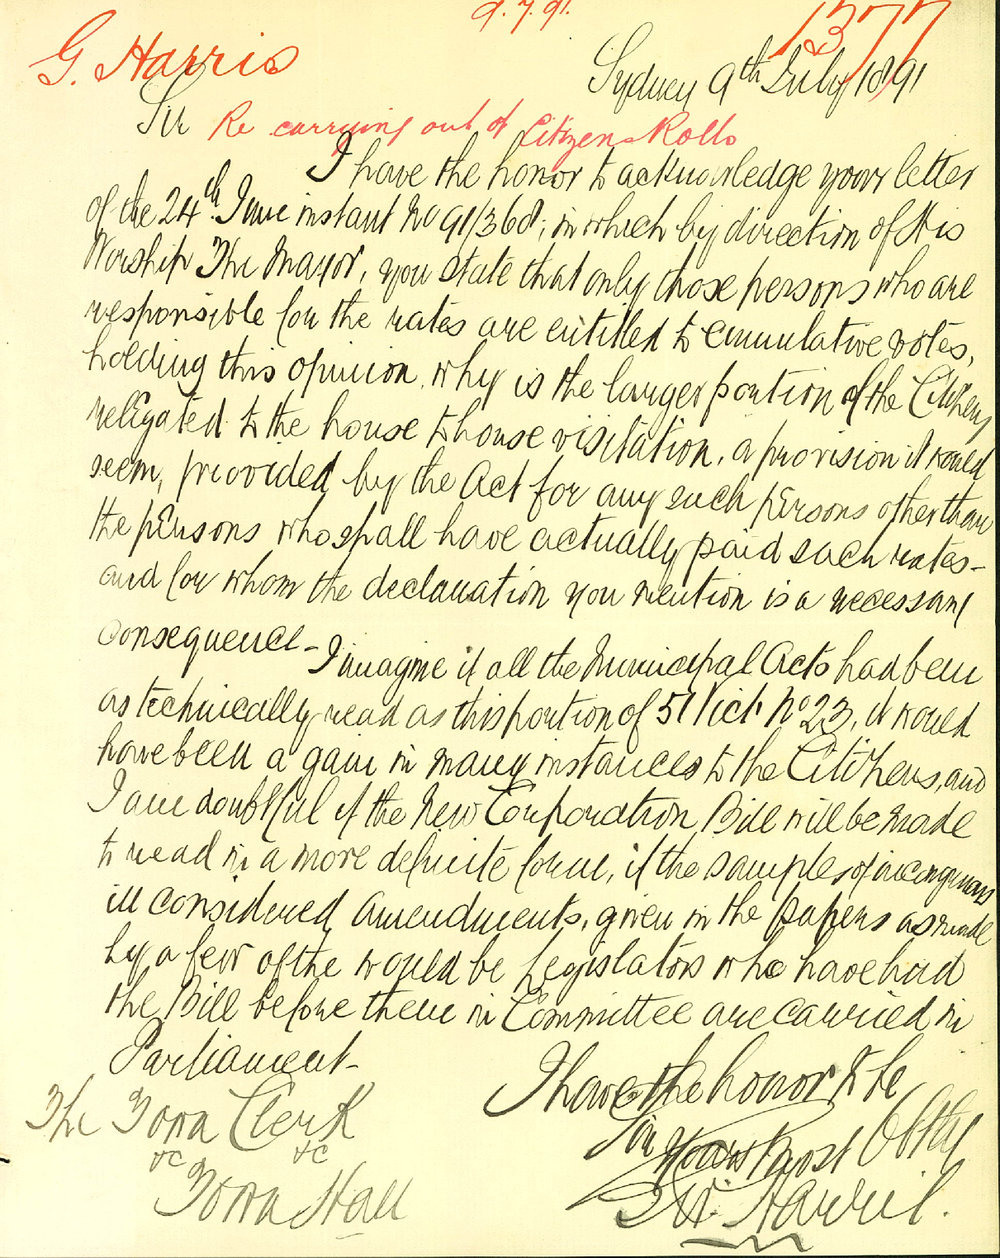 9.7.91.
1377
G. Harris
Sydney 9th July 1891
Sir Re carrying out of Citizens Rolls
I have the honor to acknowledge your letter
of the 24th. June instant No 91/368; in which by direction of His
Worship The Mayor, you state that only those persons who are
responsible for the rates are entitled to cumulative votes,
holding this opinion, why is the larger portion of the Citizens
relegated to the house to house visitation, a provision it would
seem, provided by the Act for any such persons other than
the persons who shall have actually paid such rates -
and for whom the declaration you mention is a necessary
consequence -
I imagine if all the Municipal Acts had been
as technically read as this portion of 51 Vict No 23, it would
have been a gain in many instances to the Citizens, and
I am doubtful if the New Corporation Bill will be made
to read in a more definite form, if the samples of incongruous
ill considered amendments, given in the papers as made
by a few of the would be Legislators who have had
the Bill before them in Committee are carried in
Parliament -
I have the honor to be
Sir
Your most Obt
The Town Clerk
&c &c
Town Hall
Harris.